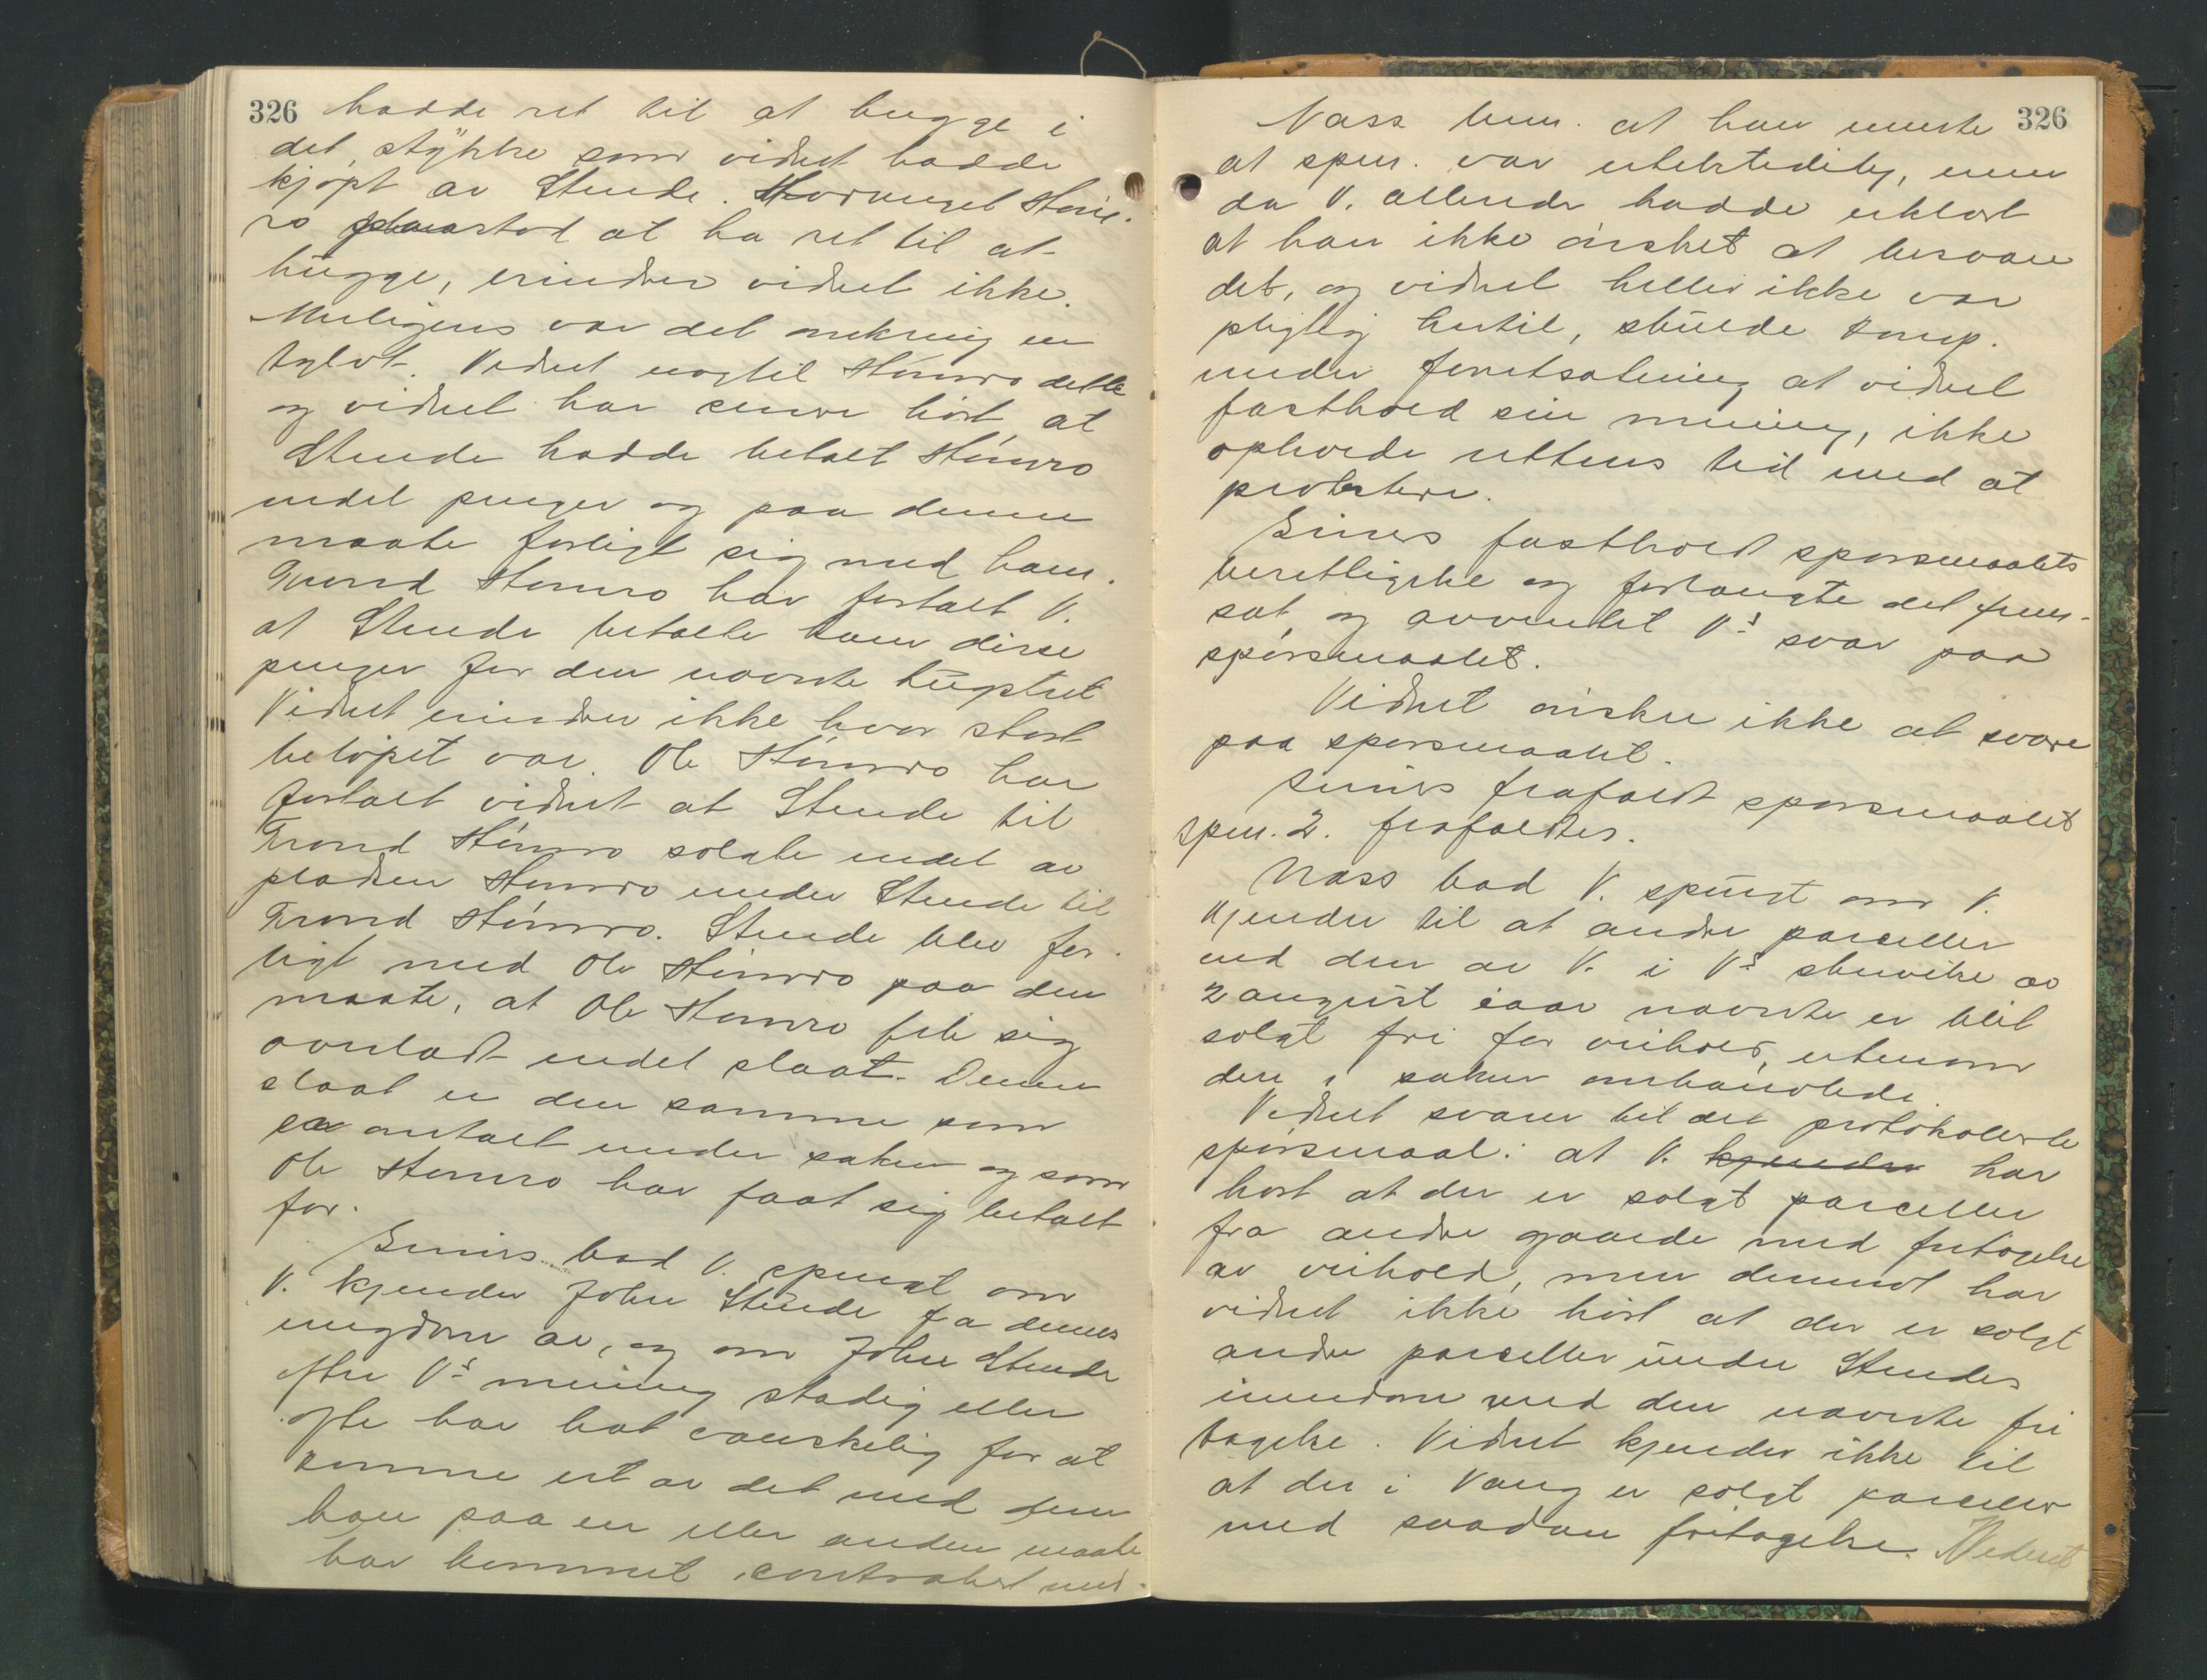 326 hadde ret til at hugge i
det stykke som vidnet hadde
kjøpt av Stende. Hvormeget Støm-
ro paastod at ha ret til at
hugge, erindrer vidnet ikke.
Muligens var det omkring en
tylvt. Vidnet negtet Stømro dette
og vidnet har senere hørt at
Stende hadde betalt Stømro
endel penger og paa denne
maate forligt sig med ham.
Trond Stømro har fortalt V.
at Stende betalte ham disse
penger for den nævnte hugstret
Vidnet erindrer ikke hvor stort
beløpet var. Ole Stømro har
fortalt vidnet at Stende til
Trond Stømro solgte endel av
pladsen Stømro under Stende til
Trond Stømro. Stende blev for-
ligt med Ole Stømro paa den
maate, at Ole Stømro fik sig
overladt endel slaat. Denne
slaat er den samme som
er omtalt under saken og som
Ole Stømro har faat sig betalt
for.
bad V. spurgt om
V. kjender John Stende fra dennes
ungdom av, og om John Stende
efter Vs mening stadig eller
ofte har hat vanskelig for at
komme ut av det med dem
han paa en eller anden maate
har kommet i kontrakt med.
Næss bem. at han mente 326
at spm. var utilstedelig, men
da V. allerede hadde erklært
at han ikke ønsket at besvare
det, og vidnet heller ikke var
pligtig hertil, skulde komp.
under forutsætning at vidnet
fastholdt sin mening, ikke
opholde rettens tid med at
protestere.
fastholdt spørsmaalets
berettigelse og forlangte det frem-
sat og avventet Vs svar paa
spørsmaalet.
Vidnet ønsker ikke at svare
paa spørsmaalet.
frafaldt spørsmaalet
spm. 2. frafaldtes.
Næss bad V. spurgt om V.
kjender til at andre parceller
end den av V. i Vs skrivelse av
2 august iaar nævnte er blit
solgt fri for utenom
den i saken omhandlede.
Vidnet svarer til det protokollerte
spørsmaal: at V. kjender har
hørt at der er solgt parceller
fra andre gaarde med fritagelse
av men derimot har
vidnet ikke hørt at der er solgt
andre parceller under Stendes
eiendom med den nævnte fri
tagelse. Vidnet kjender ikke til
at der i Vang er solgt parceller
med saadan fritagelse. Vedtat